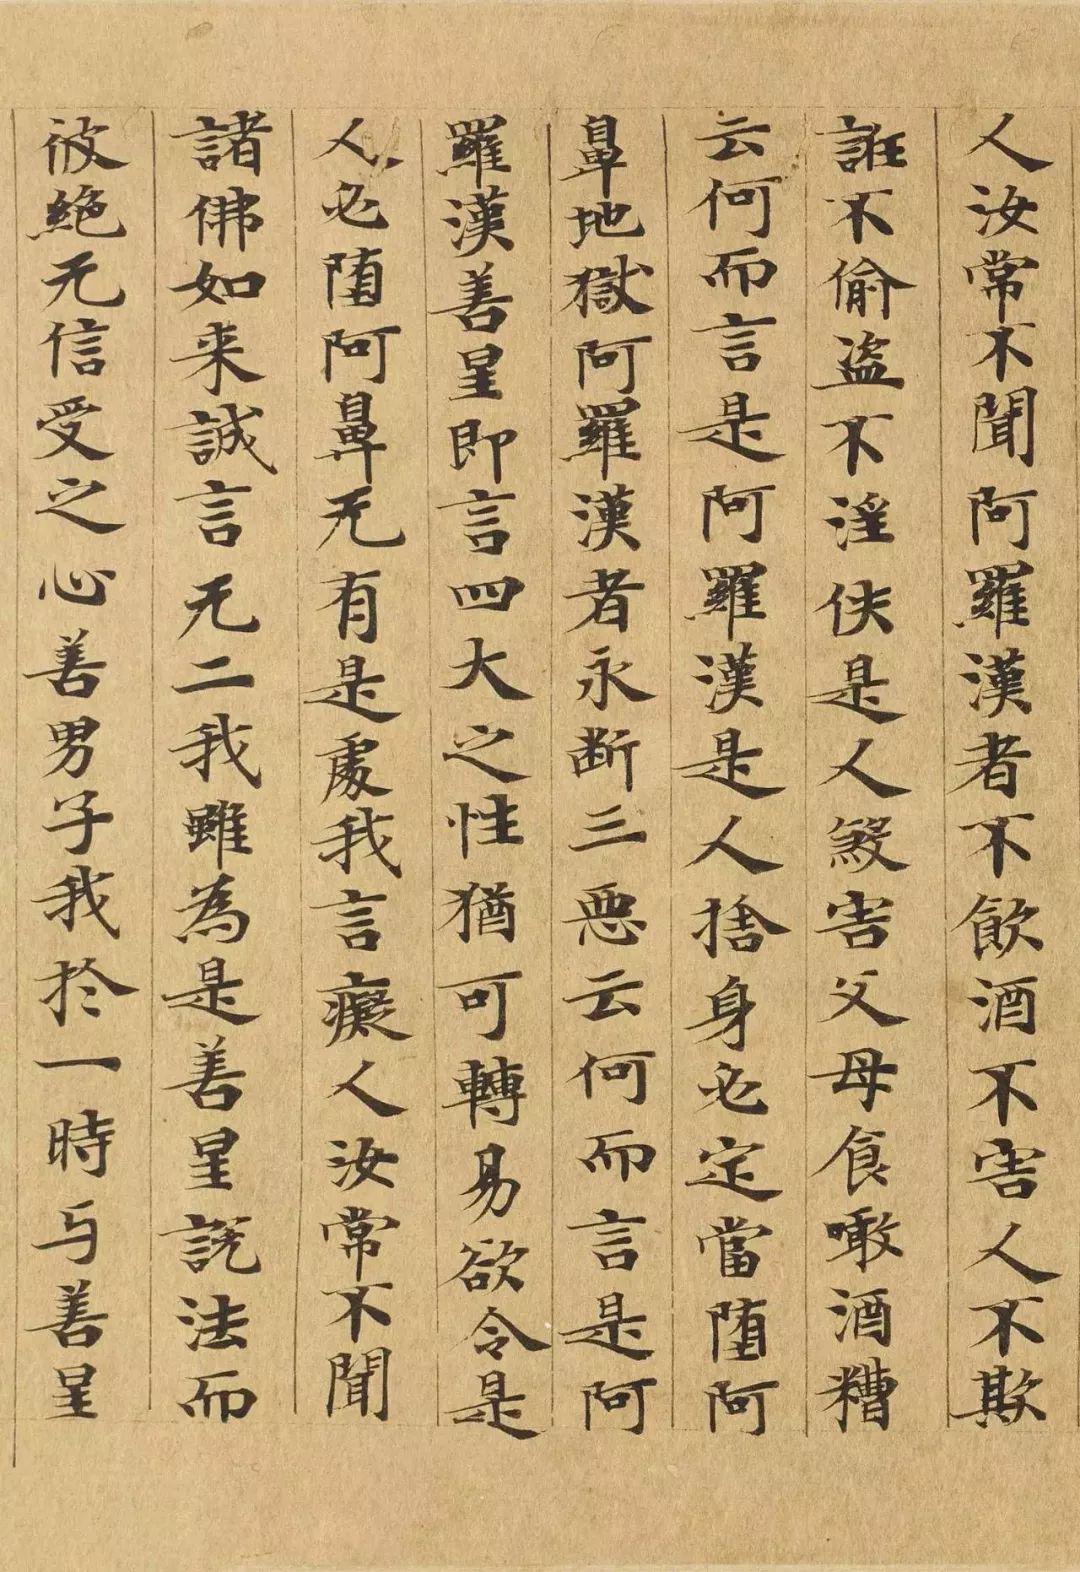 人汝常不聞阿羅漢者不飲酒不害人不欺
誑不偷盜不淫佚是人煞害父母食噉酒糟
云何而言是阿羅漢是人捨身必定當堕阿
鼻地獄阿羅漢者永断三惡云何而言是阿
羅漢善星即言四大之性猶可轉易欲令是
人必堕阿鼻无有是處我言癡人汝常不聞
諸佛如来誠言无二我雖為是善星說法而
彼絕无信受之心善男子我於一時与善星